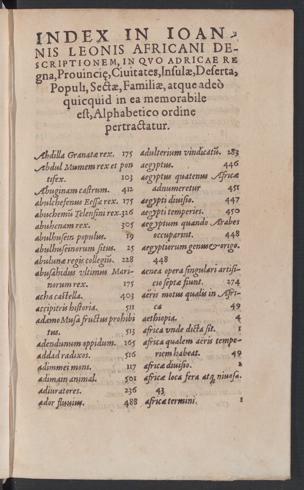 INDEX IN IOAN-
NIS LEONIS AFRICANI DE-
SCRIPTIONEM, IN QVO ADRICAE RE
gna, Prouincię, Ciuitates, Insulæ, Deserta,
Populi, Sectæ, Familiæ, atque adeò
quicquid in ea memorabile
est, Alphabetico ordine
pertractatur.
Abdilla Granatæ rex. 175
Abdul Mumem rex et pon
tifex. 103
Abuginam castrum. 412
abulchefenus Fessæ rex. 175
abuchemū Telensinı rex. 326
abuhcnam rex. 305
abulhusein populus. 19
abulhuseinorum situs. 25
abulunæ regis collegiū. 228
abusahidus vltimus Mari-
norum rex. 175
acha castella. 403
accipitris historia. 511
adamo Musa fructus prohibi
tus. 513
adendunum oppidum. 165
addad radixos. 516
adimmei mons. 117
adimain animal. 501
adiuratores. 236
ador fluuius. 488
adulterium vindicatū. 283
aegyptus. 446
aegyptus quatenus Africæ
adnumeretur 451
aegypti diuisio. 447
aegypti temperies. 450
aegyptum quando Arabes
occuparint. 448
aegyptiorum genus & origo.
448
aenea opera singulari artifi-
cio septa fiunt. 274
aëris motus qualis in Afri-
ca 49
aethiopia. 4
africa vnde dicta sit. 1
africa qualem aëris tempe-
riem habeat. 49
africæ diuisio. 2
africæ loca fera atq; niuosa.
43
africæ termini. 1